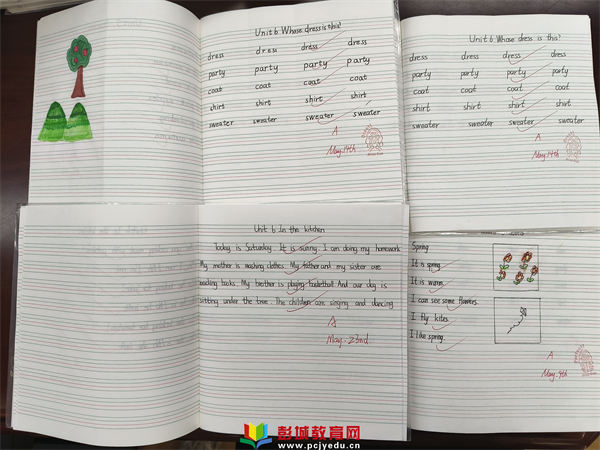 Unit 6 Whose dress is this?
dress dress dress dress
party party party party
coat coat coat coat
shirt shirt shirt shirt
sweater sweater sweater sweater
A
May.14th
Unit 6 Whose dress is this?
dress dress dress dress
party party party party
coat coat coat coat
shirt shirt shirt shirt
sweater sweater sweater sweater
A
May.14th
Unit 6 In the kitchen
Today is Saturday. It is sunny. I am doing my homework
My mother is washing clothes. My father and my sister are
reading books. My brother is playing basketball. And our dog is
sitting under the tree. The children are singing and dancing
A
May.23rd
Spring
It is spring.
It is warm.
I can see some flowers.
I fly kites.
I like spring.
A
May.9th
彭城教育网
www.pcjyedu.cn